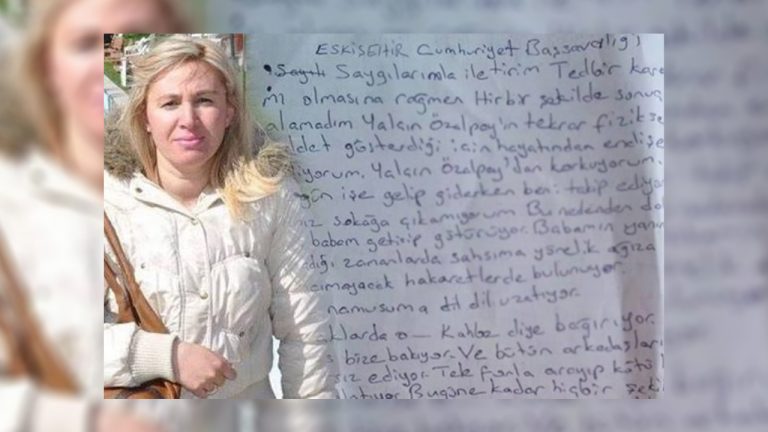 ESKİSEHİR Cumhuriyet Başsavcılığı
Saygılarımla iletirim Tedbir
olmasına rağmen Hirbir şekilde
alamadım Yalçın Özalpay'ın tekrar fizik
gösterdiği için hayatından endişe
Yalçın Özalpay'dan korkuyorum.
işe gelip giderken beni takip ediyor
sokağa çıkamıyorum Bu nedenden
babam getirip götürüyor. Babamın
zamanlarda şahsıma yönelik ağıza
hakaretlerde bulunuyor.
namusuma dil uzatıyor.
o Kahbe diye bağırıyor.
bize bakıyor. Ve bütün arkadaşları
ediyor. Tek arayıp kötü
Bugüne kadar hiçbir